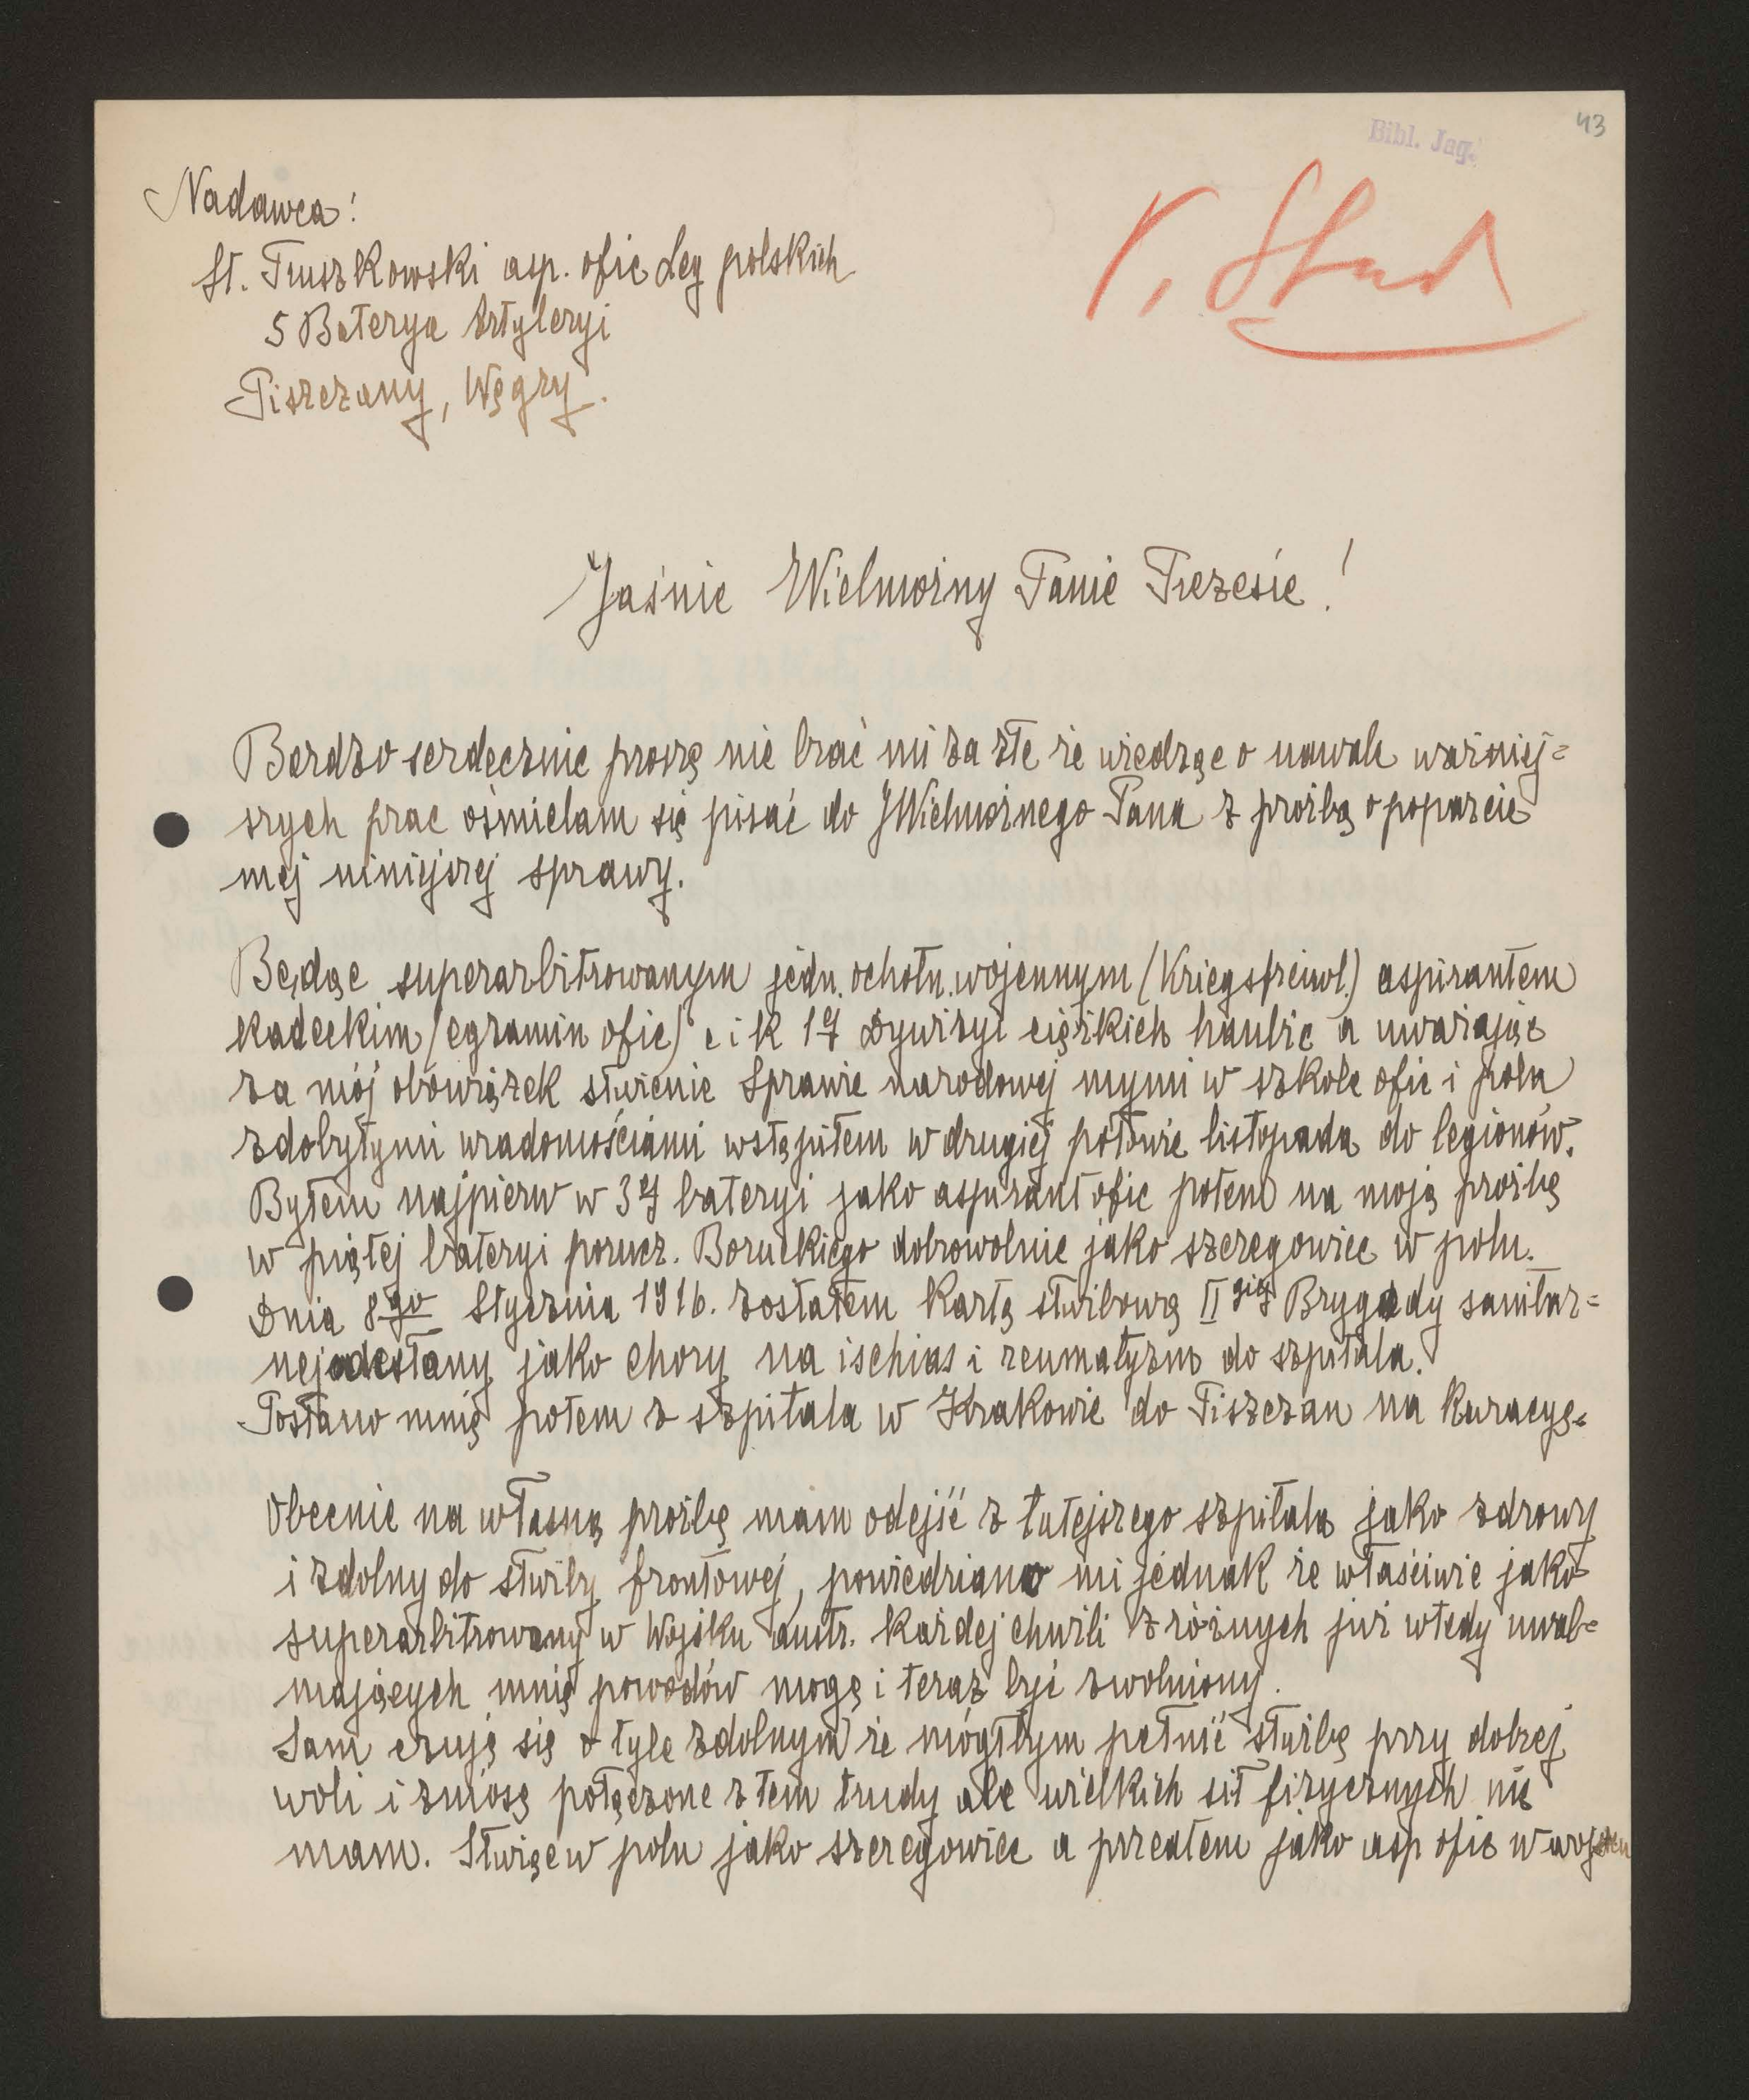 43
Bibl. Jag.
Nadawca:
St. Truszkowski asp. ofic Leg polskich
5 Baterya Artyleryi
Piszczany, Węgry.
Jaśnie Wielmożny Panie Prezesie!
Bardzo serdecznie proszę nie brać mi za złe że wiedząc o nawale ważniej=
szych prac ośmielam się pisać do JWielmożnego Pana z prośbą o poparcie
mej niniejszej sprawy.
Będąc superarbitrowanym jedn. ochotn. wojennym (Kriegsfreiwl.) aspirantem
kadeckim (egzamin ofic) c i k 17 Dywizyi ciężkich haubic a uważając
za mój obowiązek służenie Sprawie narodowej mymi w szkole ofic i polu
zdobytymi wiadomościami wstąpiłem w drugiej połowie listopada do legionów.
Byłem najpierw w 3ej bateryi jako aspirant ofic potem na moją prośbę
w piątej bateryi porucz. Boruckiego dobrowolnie jako szeregowiec w polu.
Dnia 8go Stycznia 1916. zostałem Kartą służbową IIgiej Brygady sanitar=
nej odesłany jako chory na ischias i reumatyzm do szpitala.
Posłano mnię potem z szpitala w Krakowie do Piszczan na Kuracyę.
Obecnie na własną prośbę mam odejść z tutejszego szpitala jako zdrowy
i zdolny do służby frontowej, powiedziano mi jednak że właściwie jako
superarbitrowany w Wojsku austr. każdej chwili z różnych już wtedy uwal=
niających mnię powodów mogę i teraz być zwolniony.
Sam czuję się o tyle zdolnym że mógłbym pełnić służbę przy dobrej
woli i zniosę połączone z tem trudy ale wielkich sił fizycznych nie
mam. Służąc w polu jako szeregowiec a przedtem jako asp ofic w